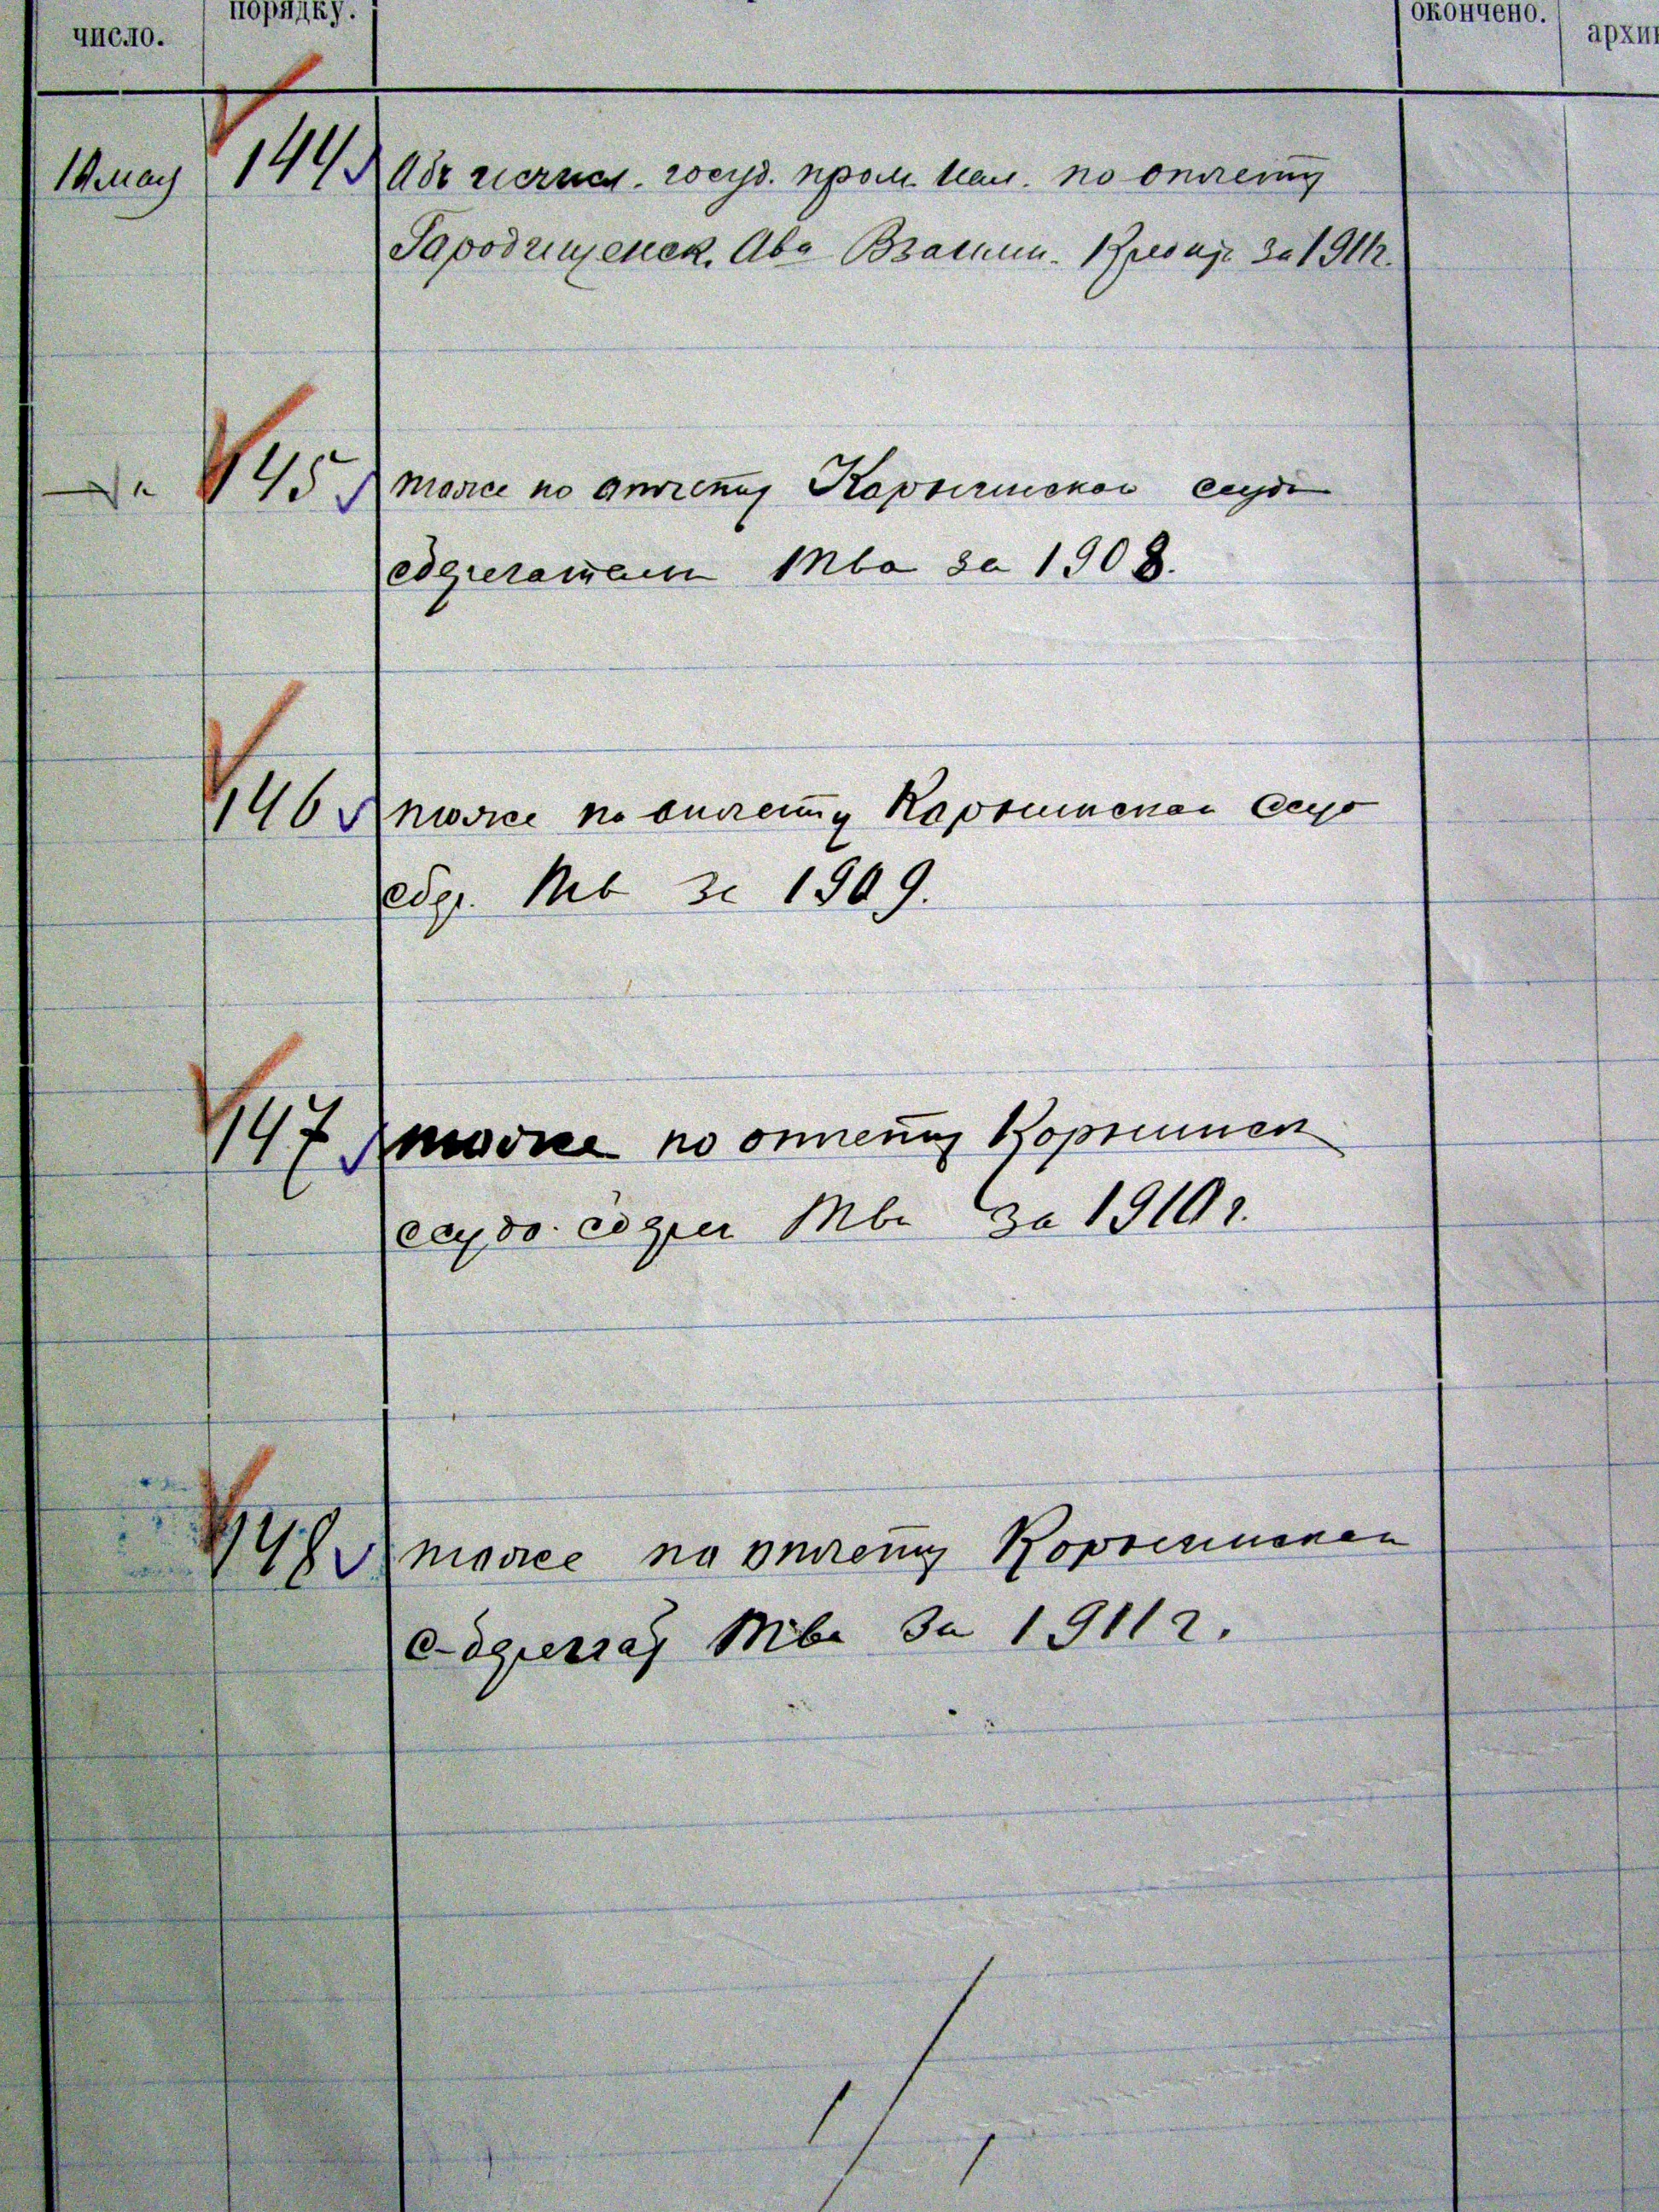 число.
порядку.
окончено.
архив
10 мая 144 Объ исчисл. госуд. пром. нал. по отчету
Городищенск. Ова Взаимн. Кредит. за 1911 г.
145 тоже по отчету Карышинскаго ссудо
сберегательн Тва за 1908.
146 тоже по отчету Карышинскаго ссудо
сбер. Тв за 1909.
147 тоже по отчету Корышинск
ссудо. сбрег Тва за 1910 г.
148 тоже по отчету
с-сберегат Тва за 1911 г.